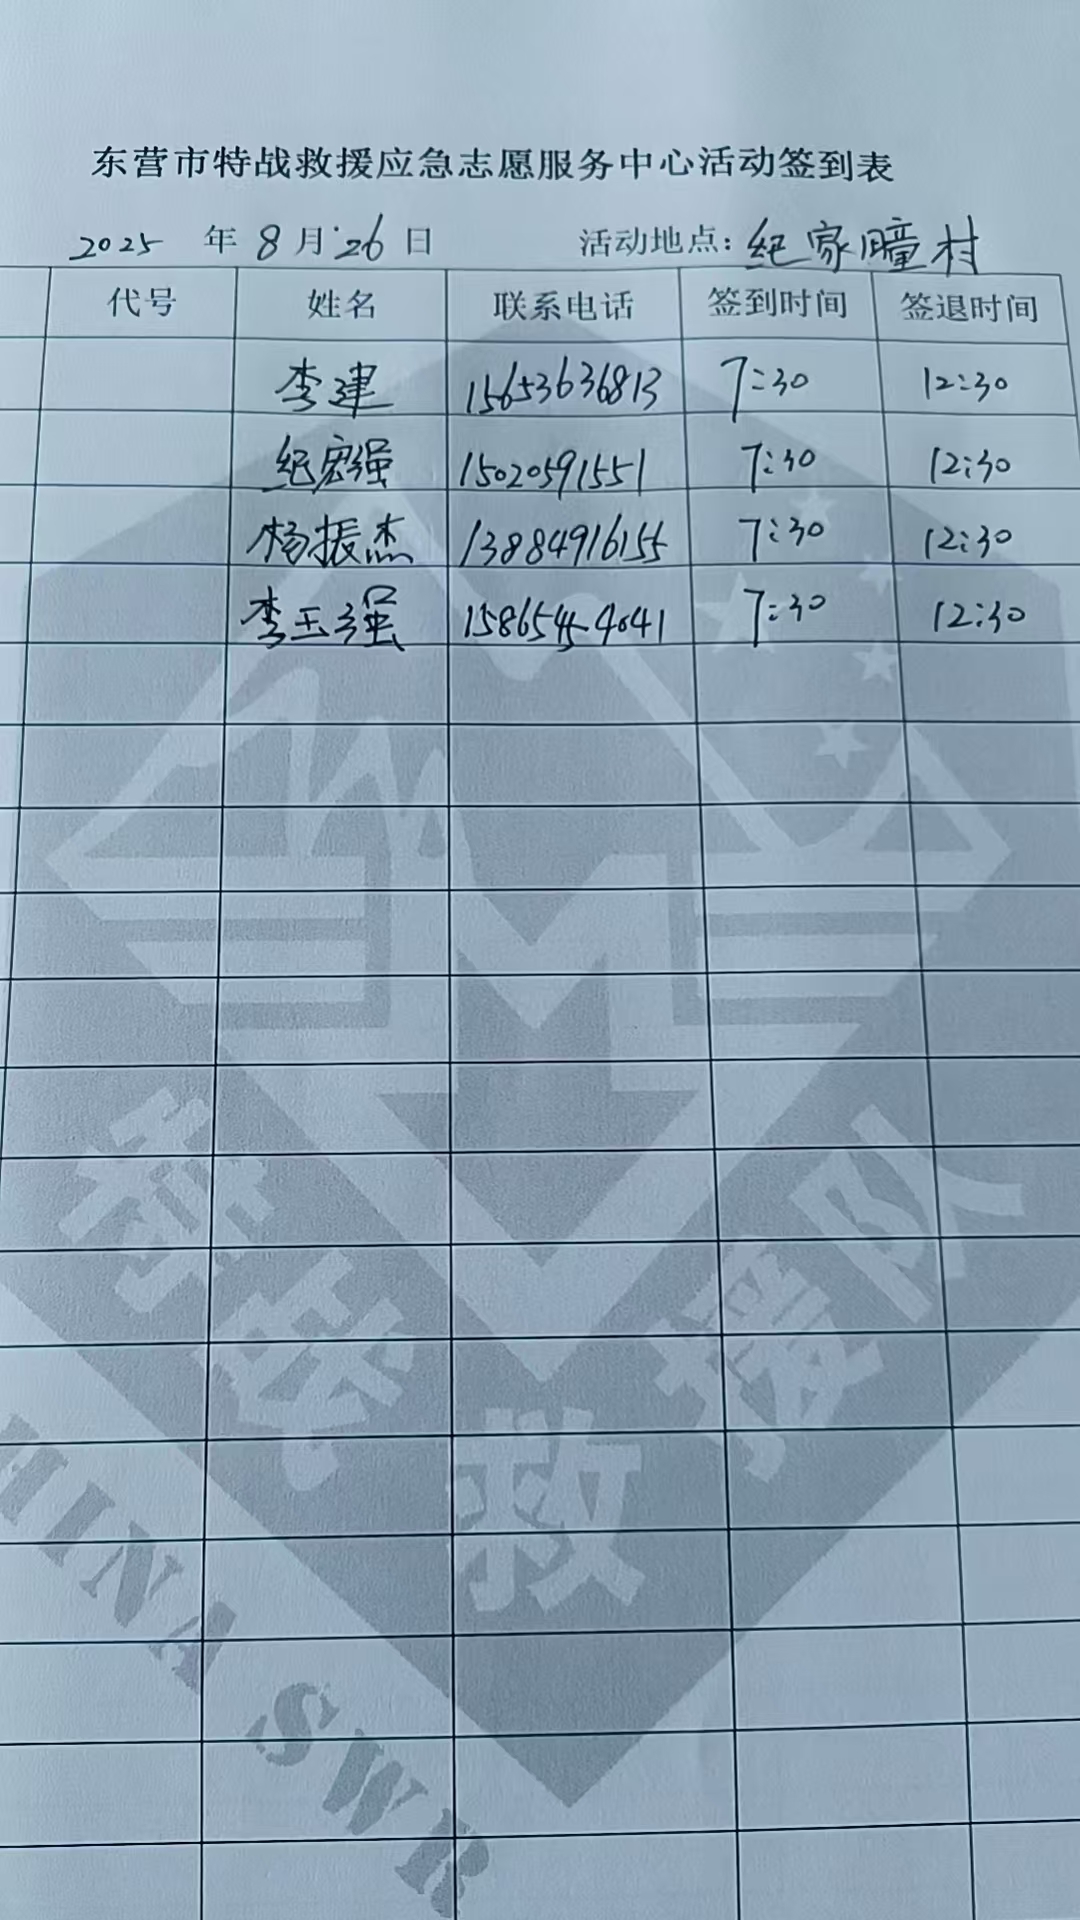 东营市特战救援应急志愿服务中心活动签到表
2025 年 8 月 26 日 活动地点：纪家疃村
代号 姓名 联系电话 签到时间 签退时间
李建 15653636813 7:30 12:30
纪宏强 15020591551 7:30 12:30
杨振杰 13884916155 7:30 12:30
李玉强 15865454041 7:30 12:30
特战救援队
HINA SWR